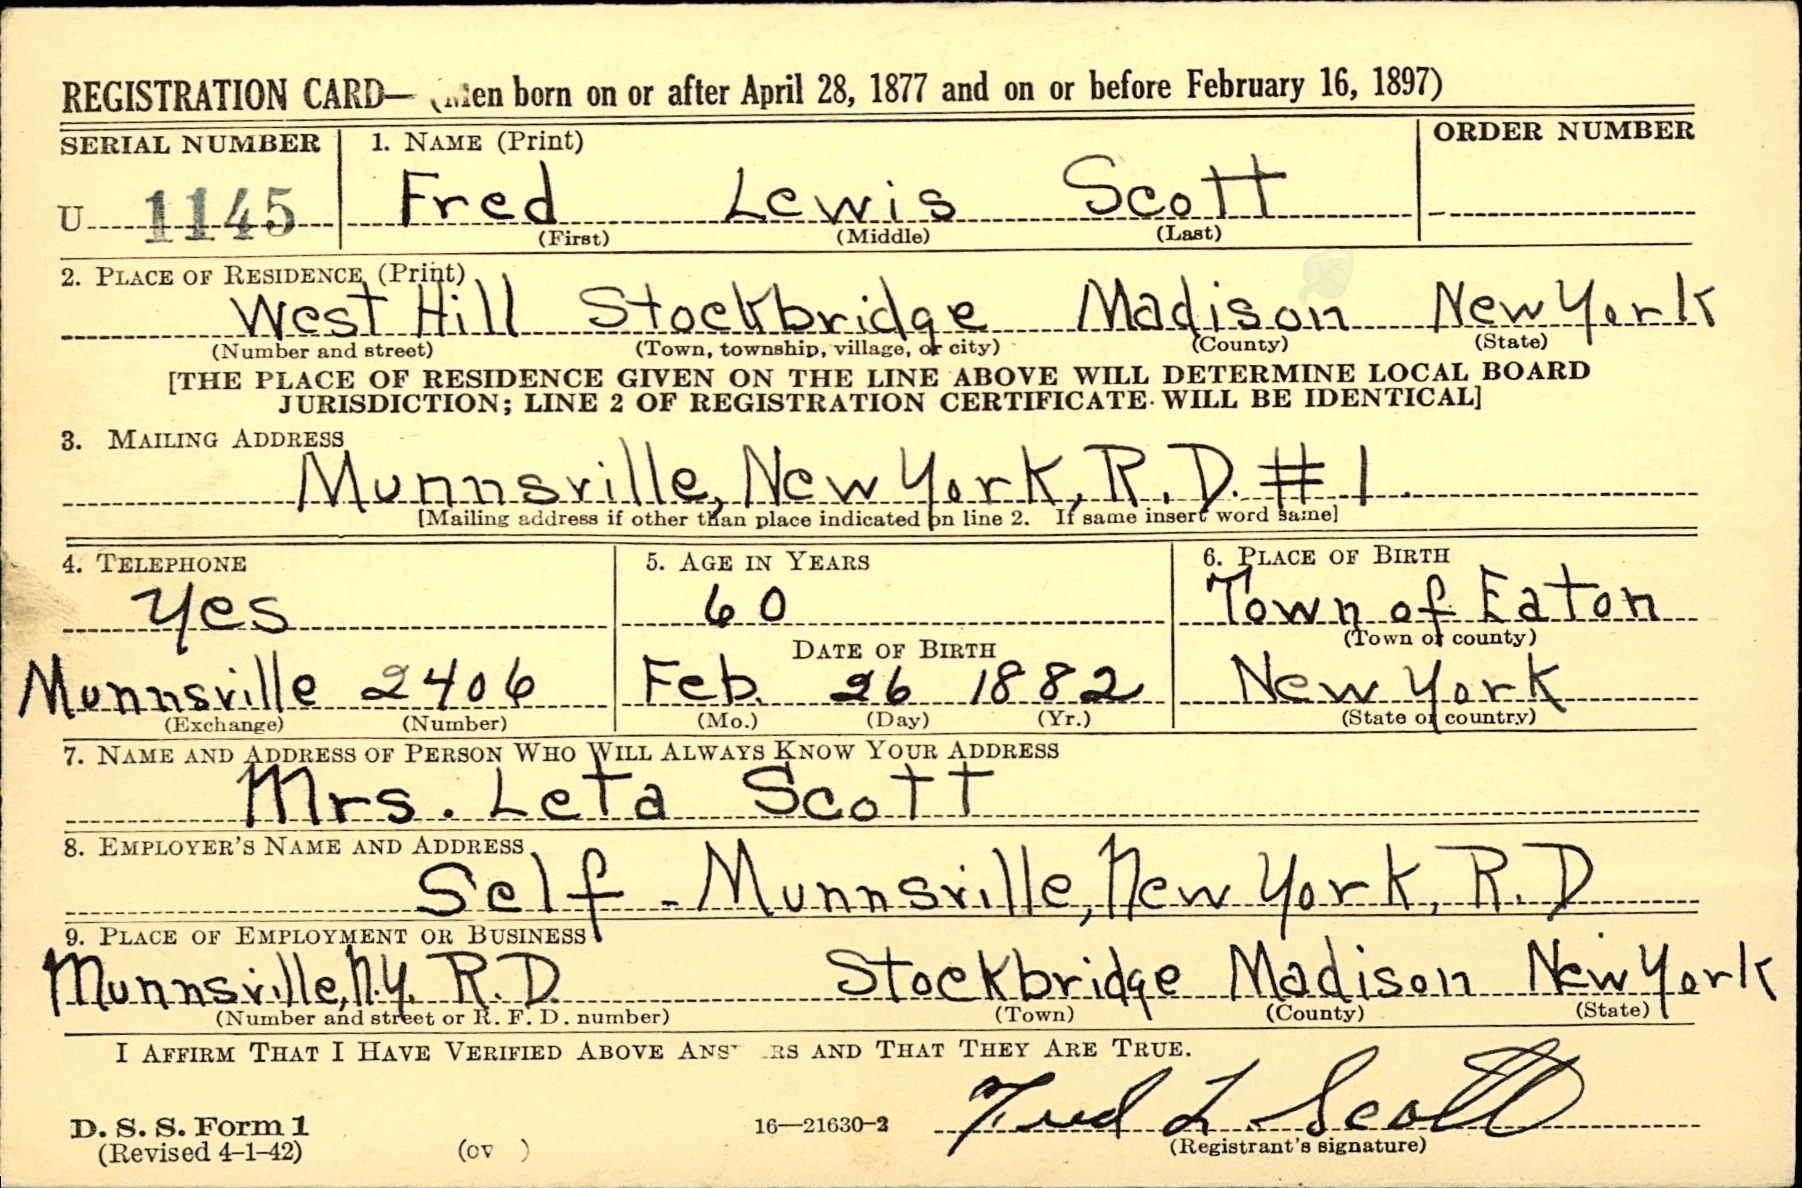 REGISTRATION CARD— (Men born on or after April 28, 1877 and on or before February 16, 1897)
SERIAL NUMBER 1. NAME (Print) ORDER NUMBER
U 1145 Fred Lewis Scott
(First) (Middle) (Last)
2. PLACE OF RESIDENCE (Print)
West Hill Stockbridge Madison New York
(Number and street) (Town, township, village, or city) (County) (State)
[THE PLACE OF RESIDENCE GIVEN ON THE LINE ABOVE WILL DETERMINE LOCAL BOARD
JURISDICTION; LINE 2 OF REGISTRATION CERTIFICATE WILL BE IDENTICAL]
3. MAILING ADDRESS
Munnsville, New York, R.D. #1.
[Mailing address if other than place indicated on line 2. If same insert word same]
4. TELEPHONE 5. AGE IN YEARS 6. PLACE OF BIRTH
Yes 60 Town of Eaton
DATE OF BIRTH (Town or county)
Munnsville 2406 Feb. 26 1882 New York
(Exchange) (Number) (Mo.) (Day) (Yr.) (State or country)
7. NAME AND ADDRESS OF PERSON WHO WILL ALWAYS KNOW YOUR ADDRESS
Mrs. Leta Scott
8. EMPLOYER'S NAME AND ADDRESS
Self - Munnsville, New York, R.D
9. PLACE OF EMPLOYMENT OR BUSINESS
Munnsville, N.Y. R.D. Stockbridge Madison New York
(Number and street or R. F. D. number) (Town) (County) (State)
I AFFIRM THAT I HAVE VERIFIED ABOVE ANSWERS AND THAT THEY ARE TRUE.
Fred L Scott
D. S. S. Form 1 16—21630-2 (Registrant's signature)
(Revised 4-1-42)